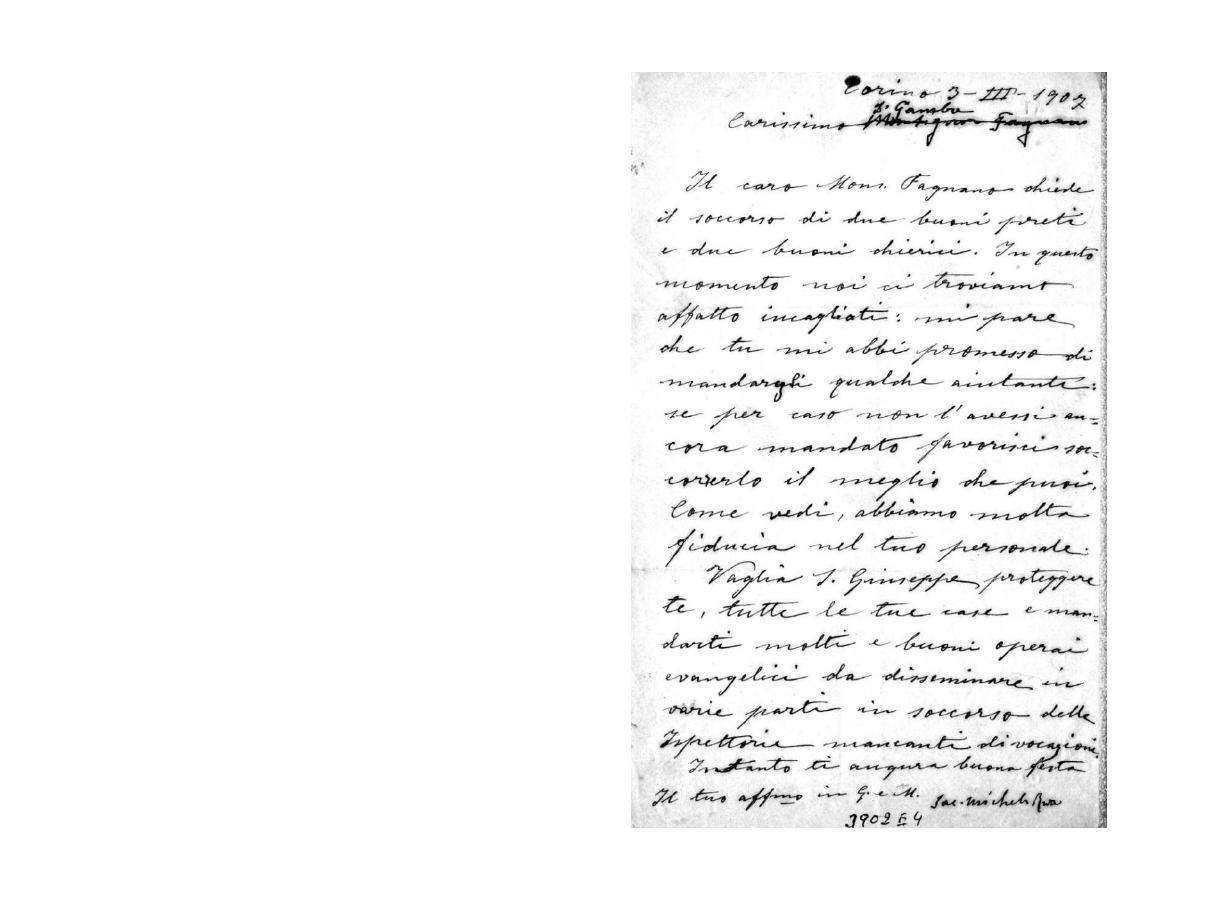 Torino 3-III-1902
D. Gamba
Carissimo Monsignor Fagnano
Il caro Mons. Fagnano chiede
il soccorso di due buoni preti
e due buoni chierici. In questo
momento noi ci troviamo
affatto incagliati: mi pare
che tu mi abbi promesso di
mandargli qualche aiutante:
se per caso non l'avessi an=
cora mandato favorisci soc=
correrlo il meglio che puoi.
Come vedi, abbiamo molta
fiducia nel tuo personale.
Vaglia S. Giuseppe proteggere
te, tutte le tue case e man=
darti molti e buoni operai
evangelici da disseminare in
varie parti in soccorso delle
Ispettorie mancanti di vocazioni.
Intanto ti augura buona festa
Il tuo affmo in G. e M. Sac. Michele Rua
3902 E 4